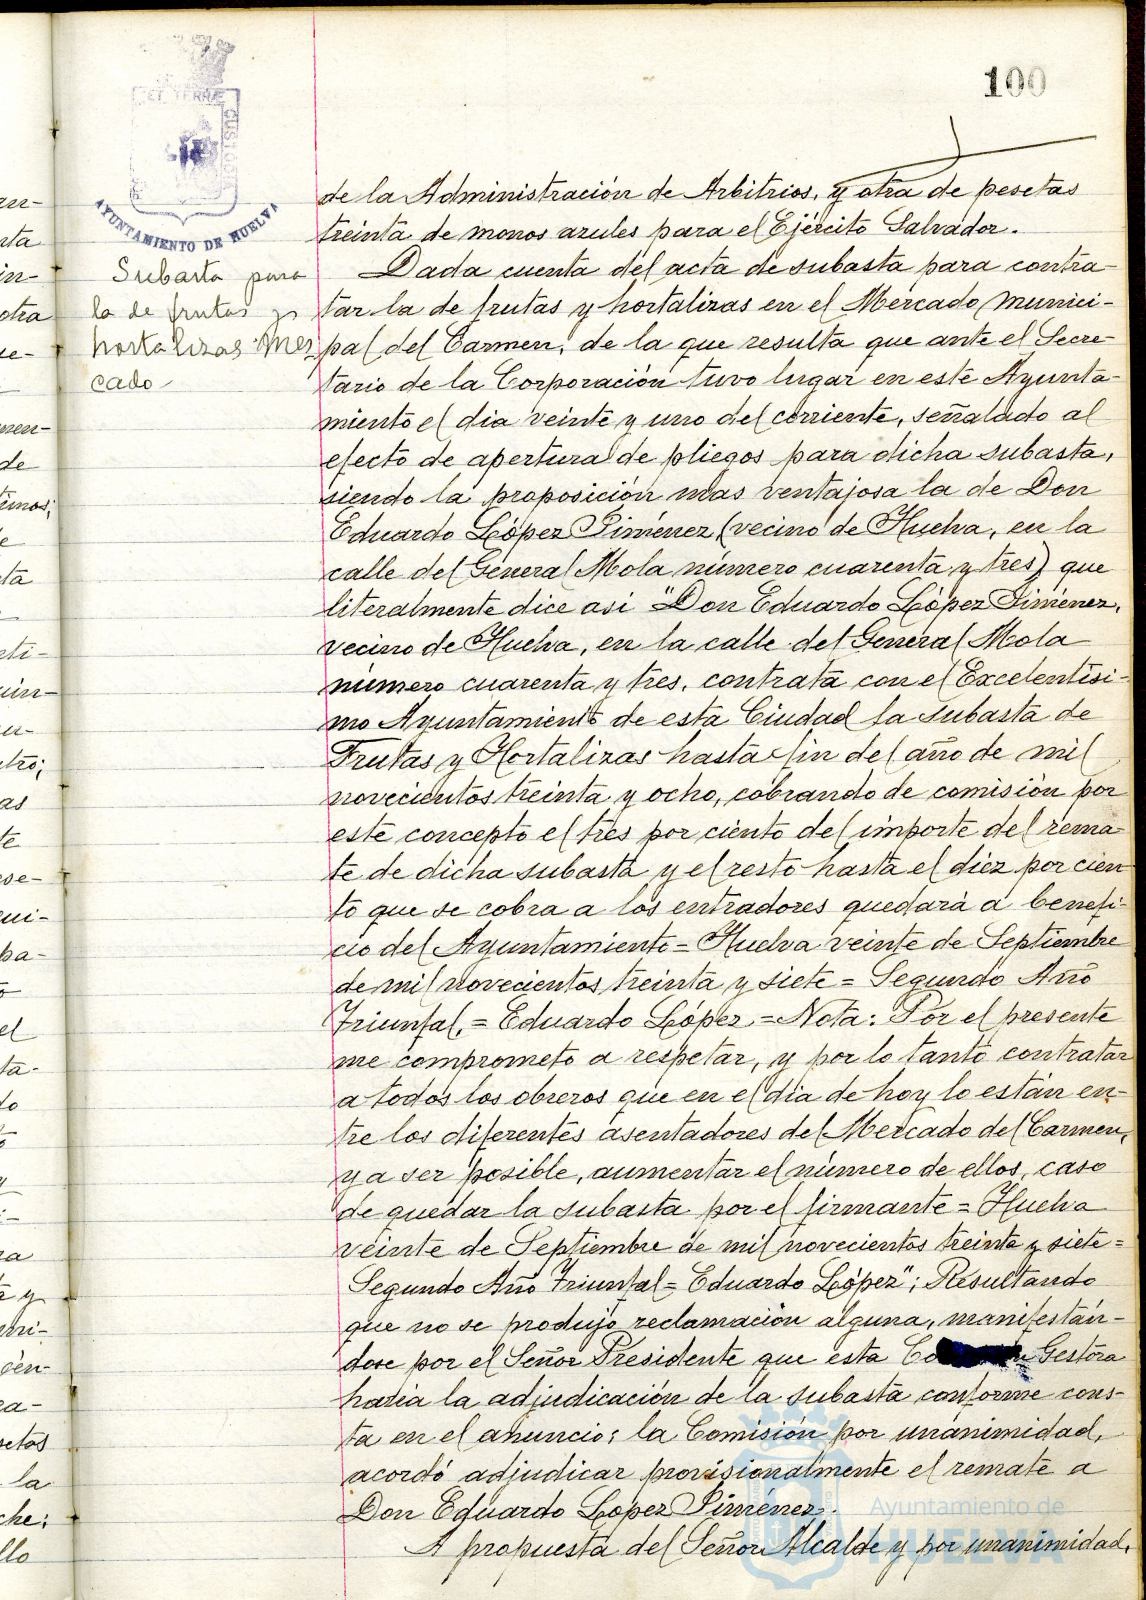 100
ET TERRÆ
CUSTOD
AYUNTAMIENTO DE HUELVA
Subasta para
la de frutas y
hortalizas Mer
cado
de la Administración de Arbitrios, y otra de pesetas
treinta de monos azules para el Ejército Salvador.
Dada cuenta del acta de subasta para contra-
tar la de frutas y hortalizas en el Mercado munici-
pal del Carmen, de la que resulta que ante el Secre-
tario de la Corporación tuvo lugar en este Ayunta-
miento el dia veinte y uno del corriente, señalado al
efecto de apertura de pliegos para dicha subasta,
siendo la proposición mas ventajosa la de Don
Eduardo López Jiménez, (vecino de Huelva, en la
calle del General Mola número cuarenta y tres) que
literalmente dice asi "Don Eduardo López Jiménez,
vecino de Huelva, en la calle del General Mola
número cuarenta y tres, contrata con el Excelentísi-
mo Ayuntamiento de esta Ciudad la subasta de
Frutas y Hortalizas hasta fin del año de mil
novecientos treinta y ocho, cobrando de comisión por
este concepto el tres por ciento del importe del rema-
te de dicha subasta y el resto hasta el diez por cien-
to que se cobra a los entradores quedará a benefi-
cio del Ayuntamiento = Huelva veinte de Septiembre
de mil novecientos treinta y siete = Segundo Año
Triunfal, = Eduardo López = Nota: Por el presente
me comprometo a respetar, y por lo tanto contratar
a todos los obreros que en el dia de hoy lo están en-
tre los diferentes asentadores del Mercado del Carmen,
y a ser posible, aumentar el número de ellos, caso
de quedar la subasta por el firmante = Huelva
veinte de Septiembre de mil novecientos treinta y siete =
Segundo Año Triunfal = Eduardo López"; Resultando
que no se produjo reclamación alguna, manifestán-
dose por el Señor Presidente que esta Co Gestora
haria la adjudicación de la subasta conforme cons-
ta en el anuncio; la Comisión por unanimidad,
acordó adjudicar provisionalmente el remate a
Don Eduardo López Jiménez.
A propuesta del Señor Alcalde y por unanimidad,
Ayuntamiento de
HUELVA